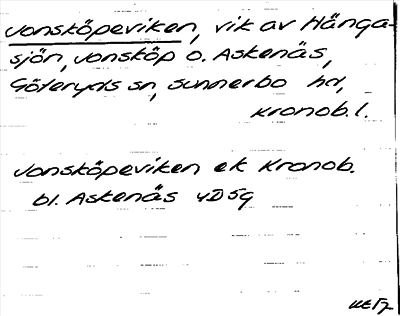 Jonsköpeviken, vik av Hänga-
sjön, Jonsköp o. Askenäs,
Göteryds sn, Sunnerbo hd,
Kronob. l.
Jonsköpeviken ek Kronob.
bl. Askenäs 4D5g